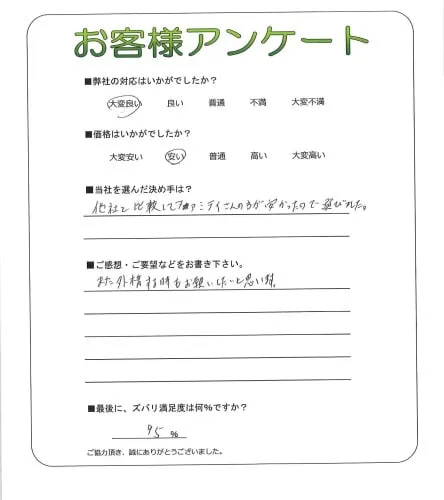 お客様アンケート
■弊社の対応はいかがでしたか?
大変良い 良い 普通 不満 大変不満
■価格はいかがでしたか?
大変安い 安い 普通 高い 大変高い
■当社を選んだ決め手は?
他社と比較してファミテイさんの方が安かったので選びました。
■ご感想・ご要望などをお書き下さい。
また外構する時もお願いしたいと思います。
■最後に、ズバリ満足度は何%ですか?
95 %
ご協力頂き、誠にありがとうございました。